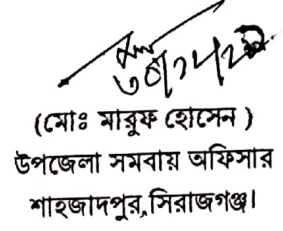 (মোঃ মারুফ হোসেন )
উপজেলা সমবায় অফিসার
শাহজাদপুর,সিরাজগঞ্জ।